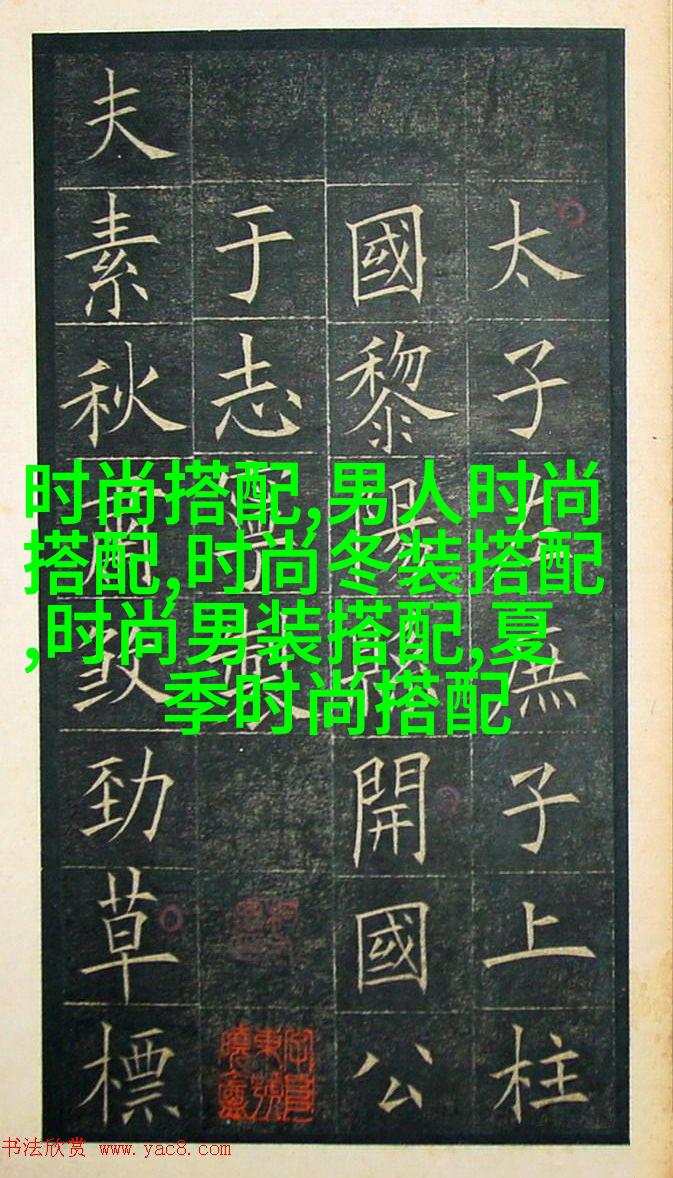 太子左庶子上柱
國黎陽開國公
于志製
夫素秋肅勁草標
时尚搭配,男人时尚
搭配,时尚冬装搭配
,时尚男装搭配,夏
季时尚搭配
书法欣赏 www.yac8.com